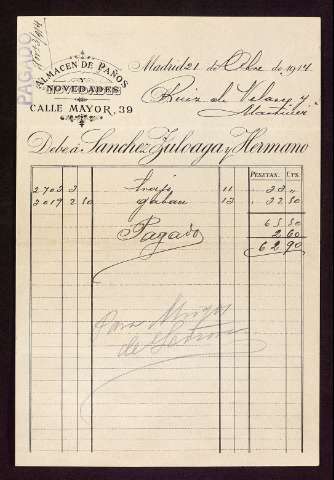 PAGADO
ALMACEN DE PAÑOS
Y
NOVEDADES
CALLE MAYOR, 39
Madrid 21 de Obre de 1914
Ruiz de Velasco y
Martinez
Debe á Sanchez Zuloaga y Hermano
PESETAS. CTS.
2703 3 traje 11 33 "
3017 2 50 gaban 13 32 50
65 50
Pagado 2 60
62 90
Para
de